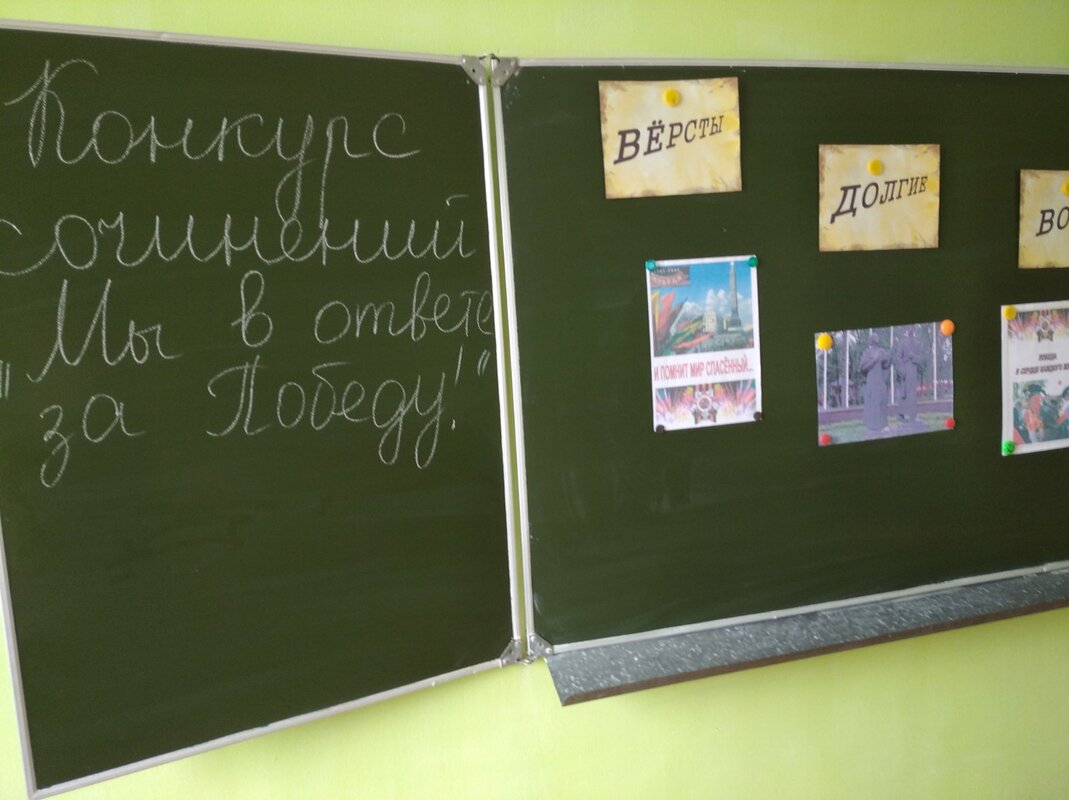 Конкурс
сочинений
Мы в ответе
"за Победу!"
ВЁРСТЫ
ДОЛГИЕ
ВО
И ПОМНИТ МИР СПАСЁННЫЙ...
ПОБЕДА
В СЕРДЦЕ КАЖДОГО